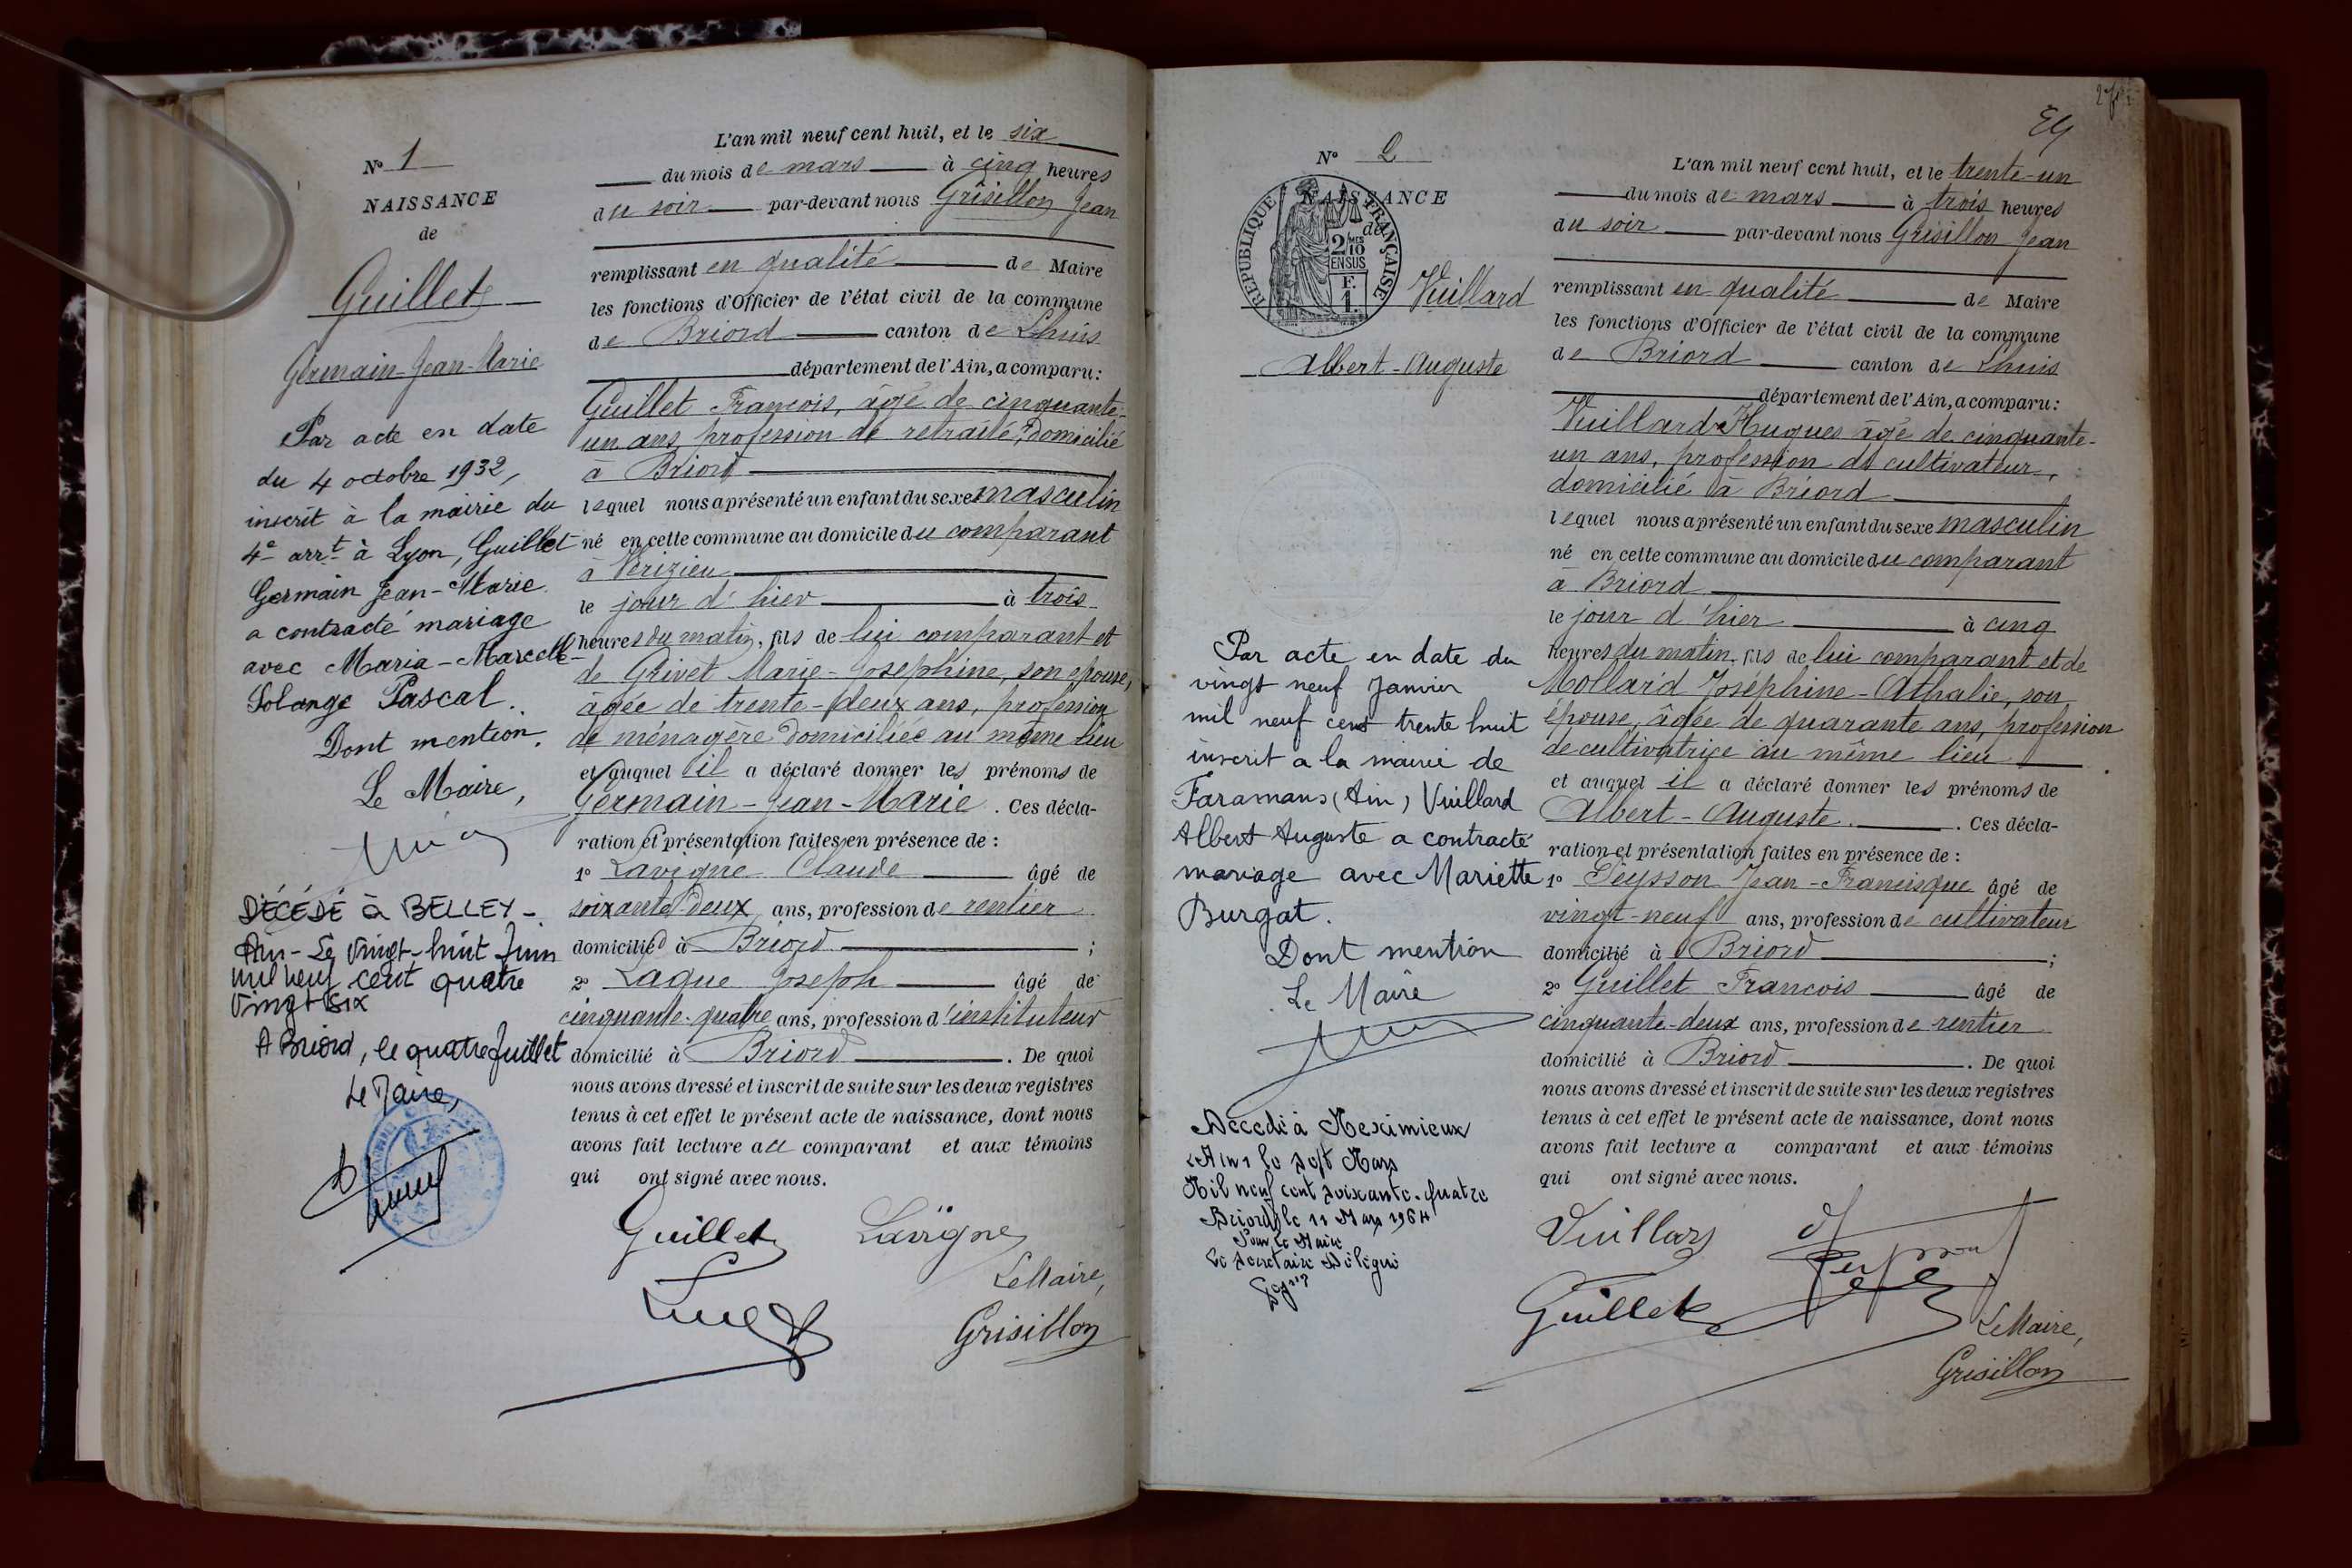 N° 1
NAISSANCE
de
Guillet
Germain-Jean-Marie
Par acte en date
du 4 octobre 1932,
inscrit à la mairie du
4e arrt à Lyon, Guillet
Germain Jean-Marie
a contracté mariage
avec Maria-Marcelle-
Solange Pascal.
Dont mention.
Le Maire,
DÉCÉDÉ à BELLEY -
Ain - Le Vingt-huit Juin
mil neuf cent quatre
Vingt Six
A Briord, le quatre Juillet
Le Maire,
L'an mil neuf cent huit, et le six
du mois de mars à cinq heures
du soir par-devant nous Grisillon Jean
remplissant en qualité de Maire
les fonctions d'Officier de l'état civil de la commune
de Briord canton de Lhuis
département de l'Ain, a comparu:
Guillet François, âgé de cinquante-
un ans, profession de retraité, domicilié
à Briord
lequel nous a présenté un enfant du sexe masculin
né en cette commune au domicile du comparant
à Vérizieu
le jour d'hier à trois
heures du matin, fils de lui comparant et
de Grivet Marie-Joséphine, son épouse,
âgée de trente-deux ans, profession
de ménagère domiciliée au même lieu
et auquel il a déclaré donner les prénoms de
Germain-Jean-Marie. Ces décla-
ration et présentation faites en présence de :
1° Lavigne Claude âgé de
soixante deux ans, profession de rentier
domicilié à Briord ;
2° Lague Joseph âgé de
cinquante-quatre ans, profession d'instituteur
domicilié à Briord. De quoi
nous avons dressé et inscrit de suite sur les deux registres
tenus à cet effet le présent acte de naissance, dont nous
avons fait lecture au comparant et aux témoins
qui ont signé avec nous.
Guillet Lavigne
Le Maire,
Grisillon
N° 2
NAISSANCE
de
RÉPUBLIQUE FRANÇAISE
2 MES
10
EN SUS
F.
1.
Vuillard
Albert-Auguste
Par acte en date du
vingt neuf Janvier
mil neuf cent trente huit
inscrit a la mairie de
Faramans (Ain) Vuillard
Albert Auguste a contracté
mariage avec Mariette
Burgat.
Dont mention
Le Maire
Décédé à Meximieux
(Ain) le sept Mars
Mil neuf cent soixante-quatre
Briord le 11 Mars 1964
Pour le Maire
Le Secrétaire Délégué
L'an mil neuf cent huit, et le trente-un
du mois de mars à trois heures
du soir par-devant nous Grisillon Jean
remplissant en qualité de Maire
les fonctions d'Officier de l'état civil de la commune
de Briord canton de Lhuis
département de l'Ain, a comparu:
Vuillard Hugues âgé de cinquante-
un ans, profession de cultivateur,
domicilié à Briord
lequel nous a présenté un enfant du sexe masculin
né en cette commune au domicile du comparant
à Briord
le jour d'hier à cinq
heures du matin, fils de lui comparant et de
Mollard Joséphine-Athalie, son
épouse, âgée de quarante ans, profession
de cultivatrice au même lieu
et auquel il a déclaré donner les prénoms de
Albert-Auguste. Ces décla-
ration et présentation faites en présence de :
1° Peysson Jean-Francisque âgé de
vingt-neuf ans, profession de cultivateur
domicilié à Briord ;
2° Guillet Francois âgé de
cinquante-deux ans, profession de rentier
domicilié à Briord. De quoi
nous avons dressé et inscrit de suite sur les deux registres
tenus à cet effet le présent acte de naissance, dont nous
avons fait lecture a comparant et aux témoins
qui ont signé avec nous.
Vuillard
Guillet
Le Maire,
Grisillon